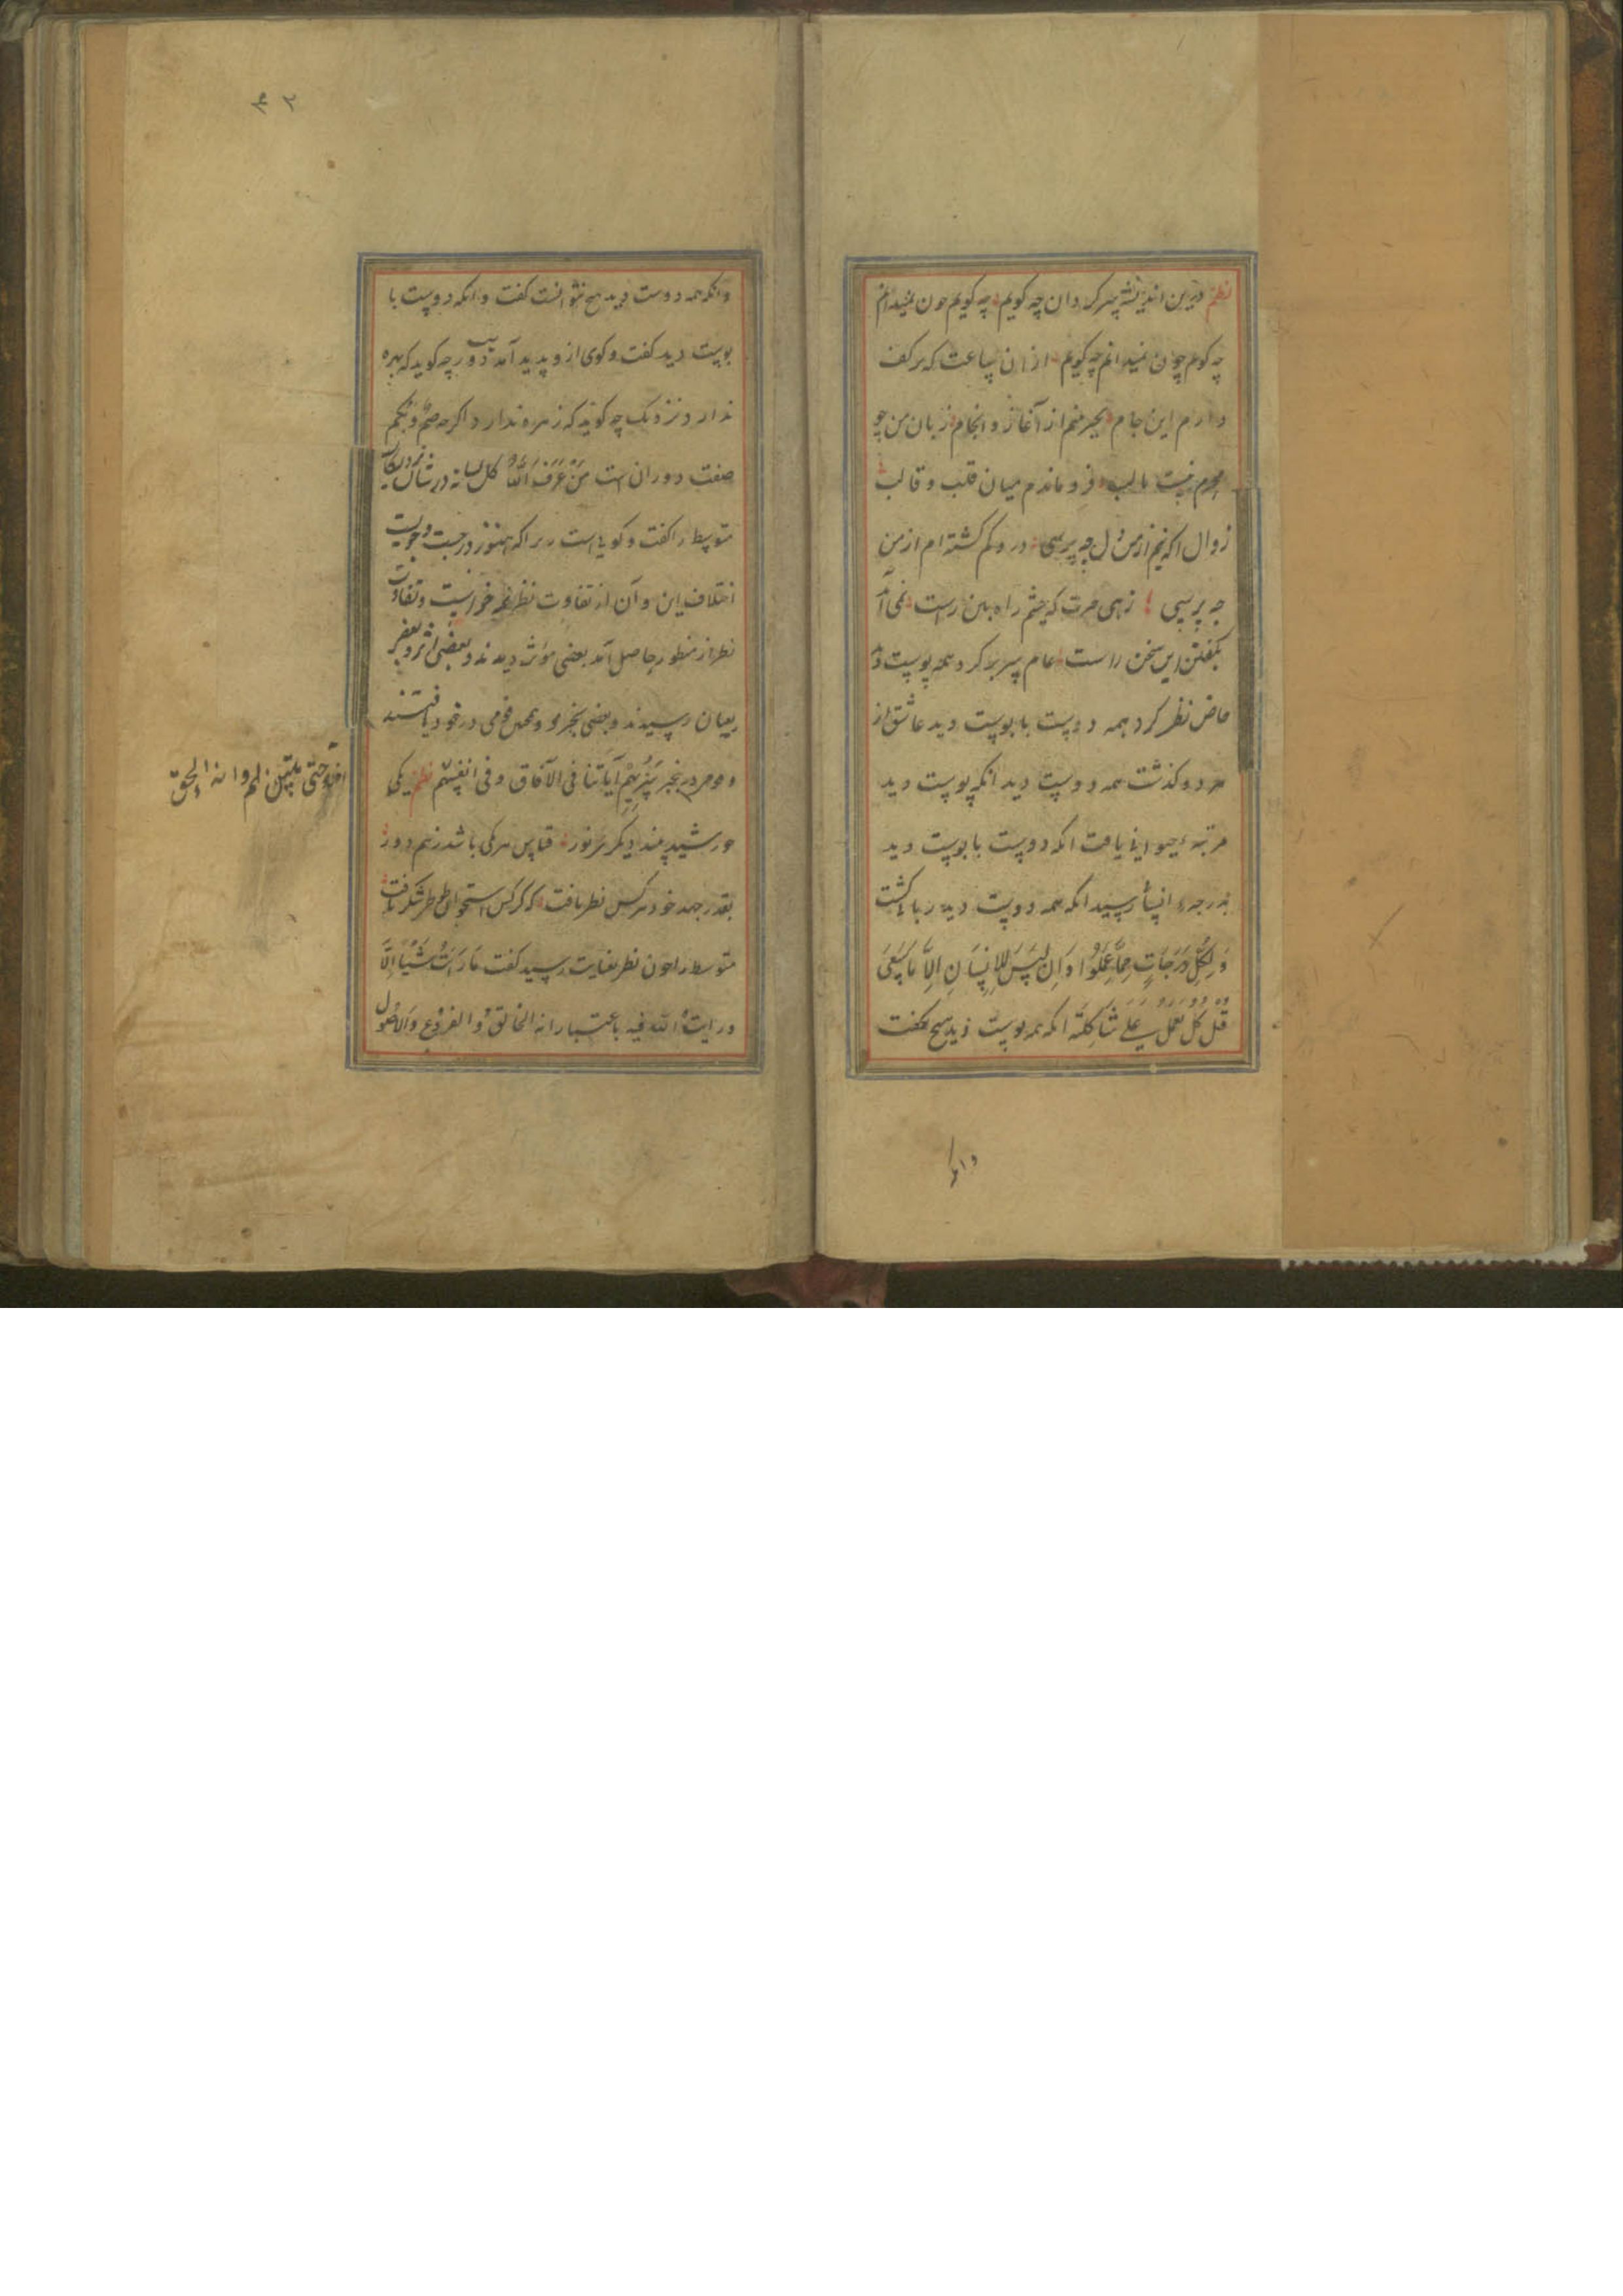 نظم درین اندیشه سرکردان چه کویم چه کویم جون نمیدانم
چه کویم چون نمیدانم چه کویم از آن ساعت که بر کف
دارم این جام بخبر منم از آغاز و انجام زبان من چو
محرم نیست با لب فرو ماندم میان قلب و قالب
زوال اکه نیم از من دل چه پرسی در و کم کشته ام از من
چه پرسی زهی حیرت که چشم راه بین راست نمی آید
بکفتن این سخن راست عام سر بر کرد همه پوست دید
خاص نظر کرد همه دوست با پوست دید عاشق از
هر دو کذشت همه دوست دید انکه پوست دید
مرتبهٔ حیوانی یافت انکه دوست با پوست دید
بدرجهٔ انسا رسید انکه همه دوست دید ربا کشت
وَلِکُلٍّ دَرَجَاتٍ مِمَّا عَمِلُوا وَاَن لَیْسَ لِلاِنسَانِ اِلاَّ مَا سَعَی
قُلْ کُلٌّ یَعْمَلُ عَلَی شَاکِلَتِه انکه همه پوست دید هیچ نکفت
وانکه
۳۲
وانکه همه دوست دید هیچ نتوانست کفت و انکه دوست با
پوست دید کفت و کوی از و پدید آمد دور چه کوید که بهره
ندارد و نزدیک چه کوید که زهره ندارد اکرچه صم و بکم
صفت دوران است مَنْ عَرَفَ اللهَ کل لسانه در شان نزدیکان
متوسط را کفت و کویها است زیرا که هنوز در جست و جویست
اختلاف این و آن از تفاوت نظر خواست و تفاوت
نظر از منظور حاصل آمد بعضی مؤثر دیدند و بعضی اثر و بعضی
بعیان رسیدند و بعضی بخبر و در خود یافتند
و بخبر سَنُرِیهِمْ آیَاتِنَا فی الآفاق و فی انفسهم نظم یکی
خورشید بیند دیکری نور قیاس هر یکی باشد زهم دور
بقدر جهد خود هرکس نظر یافت که کرکس استخوان طوطی شکر یافت
متوسط را جون نظر بغایت رسید کفت مَا رَاَیْتُ شَیْئًا اِلَّا
ورایت الله فیه باعتبار انه الخالق و الفروع و الاصول
حتی یتبین لهم انه الحق